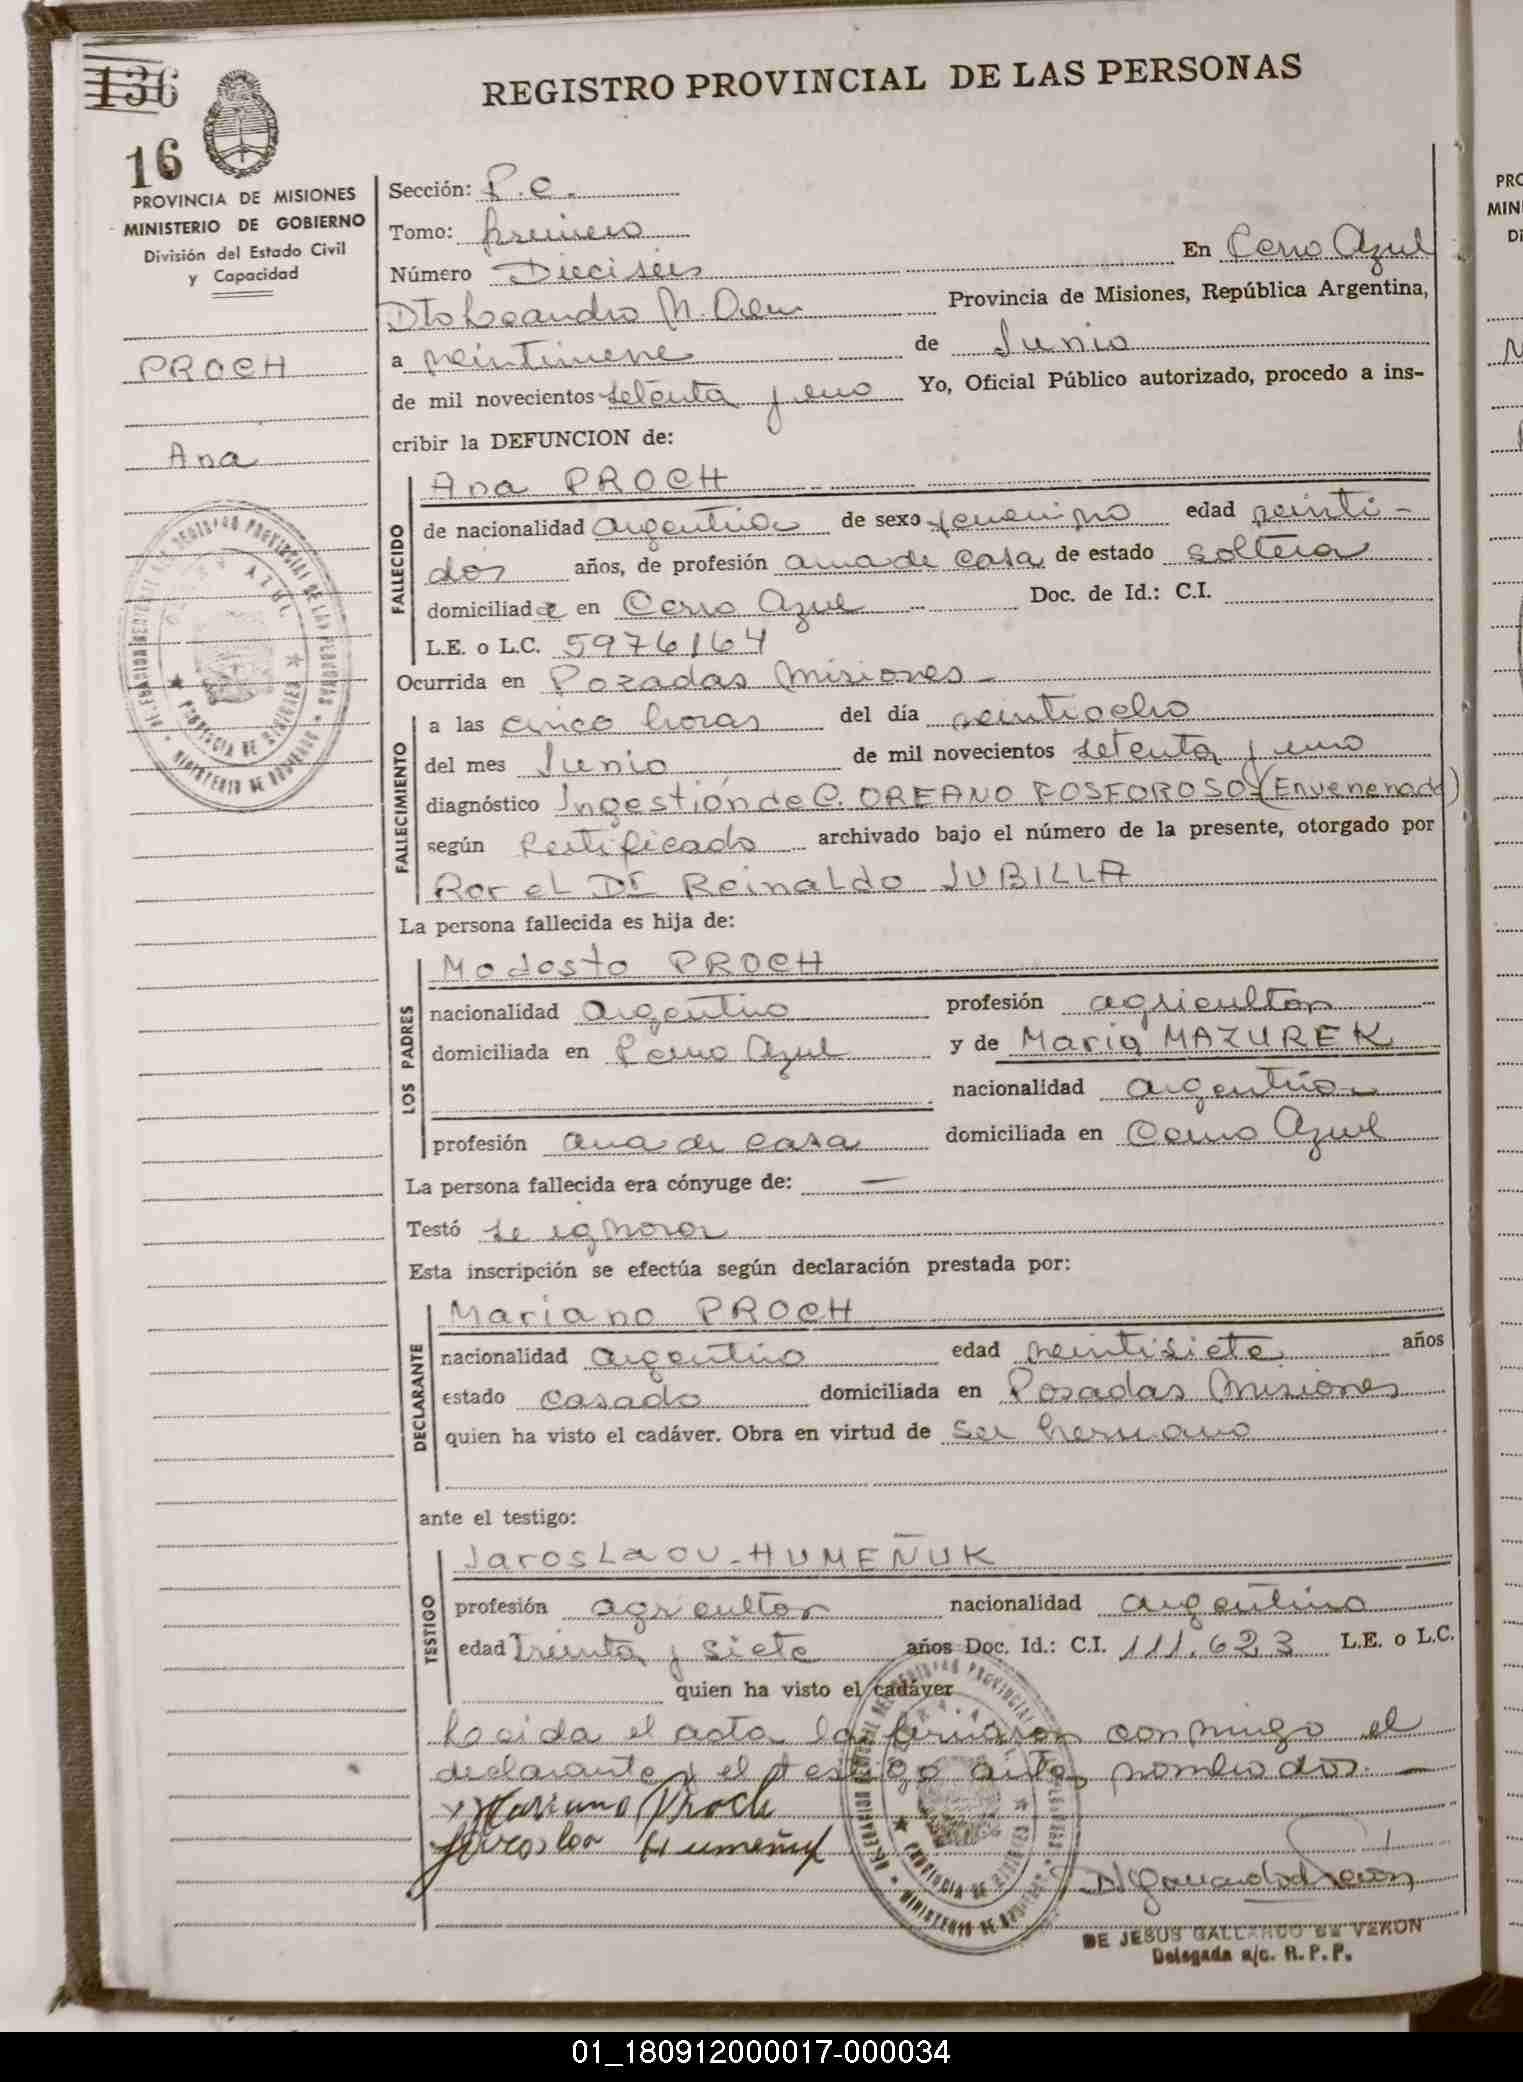 REGISTRO PROVINCIAL DE LAS PERSONAS
136
16
PROVINCIA DE MISIONES
MINISTERIO DE GOBIERNO
División del Estado Civil
y Capacidad
PROCH
Ana
Sección: P.C.
Tomo: primero
Número Dieciseis En Cerro Azul
Dto Leandro N. Alem Provincia de Misiones, República Argentina,
a veintinueve de Junio
de mil novecientos setenta y uno Yo, Oficial Público autorizado, procedo a ins-
cribir la DEFUNCION de:
FALLECIDO
Ana PROCH
de nacionalidad argentina de sexo femenino edad veinti-
dos años, de profesión ama de casa de estado soltera
domiciliada en Cerro Azul Doc. de Id.: C.I.
L.E. o L.C. 5976164
Ocurrida en Pozadas Misiones -
FALLECIMIENTO
a las cinco horas del día veintiocho
del mes Junio de mil novecientos setenta y uno
diagnóstico Ingestión de C. OREANO FOSFOROSO-(Envenenado)
según Certificado archivado bajo el número de la presente, otorgado por
Por el Dr Reinaldo JUBILLA
La persona fallecida es hija de:
LOS PADRES
Modesto PROCH
nacionalidad Argentino profesión agricultor
domiciliada en Cerro Azul y de Maria MAZUREK
nacionalidad argentina
profesión ama de casa domiciliada en Cerro Azul
La persona fallecida era cónyuge de: —
Testó se ignora
Esta inscripción se efectúa según declaración prestada por:
DECLARANTE
Mariano PROCH
nacionalidad argentino edad veintisiete años
estado casado domiciliada en Posadas Misiones
quien ha visto el cadáver. Obra en virtud de ser hermano
ante el testigo:
TESTIGO
Jaroslaou-HUMEÑUK
profesión agricultor nacionalidad argentino
edad Treinta y siete años Doc. Id.: C.I. 111.623 L.E. o L.C.
quien ha visto el cadáver
Leida el acta la firmaron conmigo el
declarante y el testigo antes nombrados. —
Mariano Proch
Jaroslao Humeñuk
DE JESUS GALLARDO DE VERON
Delegada a/c. R. P. P.
01_180912000017-000034